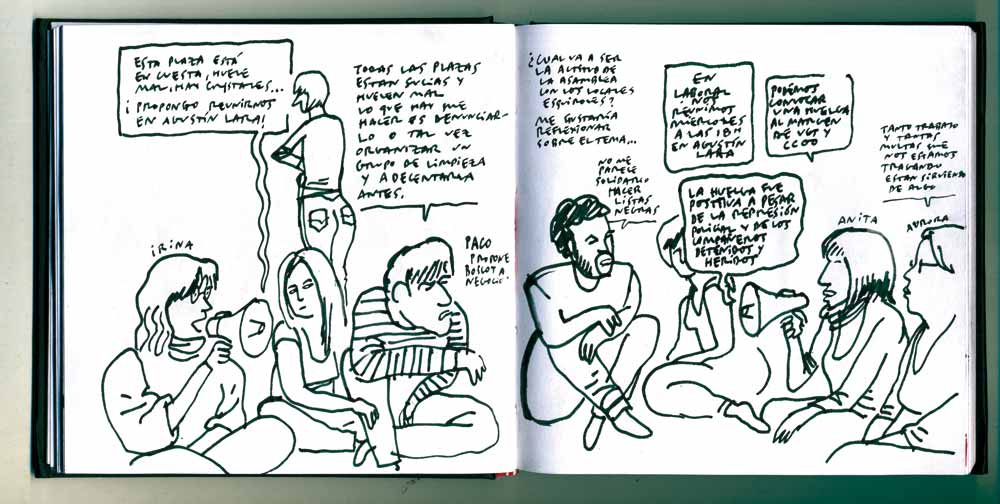 ESTA PLAZA ESTÁ
EN CUESTA, HUELE
MAL, HAY CRISTALES...
¡PROPONGO REUNIRNOS
EN AGUSTÍN LARA!
TODAS LAS PLAZAS
ESTAN SUCIAS Y
HUELEN MAL
LO QUE HAY QUE
HACER ES DENUNCIAR-
LO O TAL VEZ
ORGANIZAR UN
GRUPO DE LIMPIEZA
Y ADECENTARLA
ANTES.
IRINA
PACO
PROPONE
BOICOT A
NEGOCIO.
¿CUAL VA A SER
LA ACTITUD DE
LA ASAMBLEA
CON LOS LOCALES
ESQUIROLES?
ME GUSTARÍA
REFLEXIONAR
SOBRE EL TEMA...
NO ME
PARECE
SOLIDARIO
HACER
LISTAS
NEGRAS
EN
LABORAL
NOS
REUNIMOS
MIERCOLES
A LAS 18H
EN AGUSTÍN
LARA
PODEMOS
CONVOCAR
UNA HUELGA
AL MARGEN
DE UGT Y
CCOO
LA HUELGA FUE
POSITIVA A PESAR
DE LA REPRESIÓN
POLICIAL Y DE LOS
COMPAÑEROS
DETENIDOS Y
HERIDOS
TANTO TRABAJO
Y TANTAS
MULTAS QUE
NOS ESTAMOS
TRAGANDO
ESTAN SIRVIENDO
DE ALGO
ANITA
AURORA